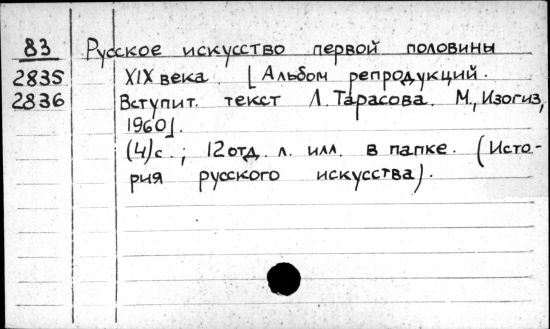 83 Русское искусство первой половины
2835 XIX века. [Альбом репродукций.
2836 Вступит. текст Л. Тарасова. М., Изогиз,
1960].
(4)с.; 12 отд. л. илл. в папке. (Исто-
рия русского искусства).